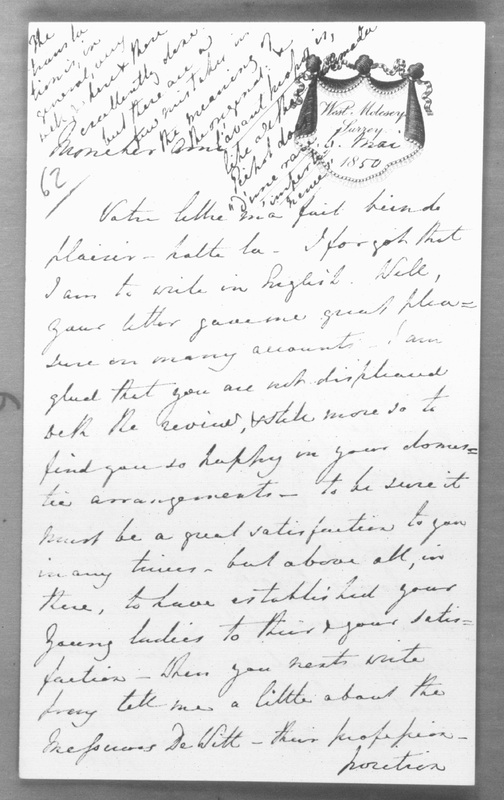 The
transla
tion is, in
general, very
well done & there
excellently done
but there are a
few mistakes in
the meaning of
the original
West. Molesey
Surrey
6. Mai
1850
Mon cher Ami
62
Votre lettre m'a fait bien de
plaisir – halte la – I forgot that
I am to write in English. Well,
your letter gave me great plea=
sure on many accounts – I am
glad that you are not displeased
with the review, & still more so to
find you so happy in your domes=
tic arrangements – to be sure it
must be a great satisfaction to you
in any times – but above all, in
these, to have established your
young ladies to their & your satis=
faction – When you next write
pray tell me a little about the
Messieurs De Witt – their profession –
position